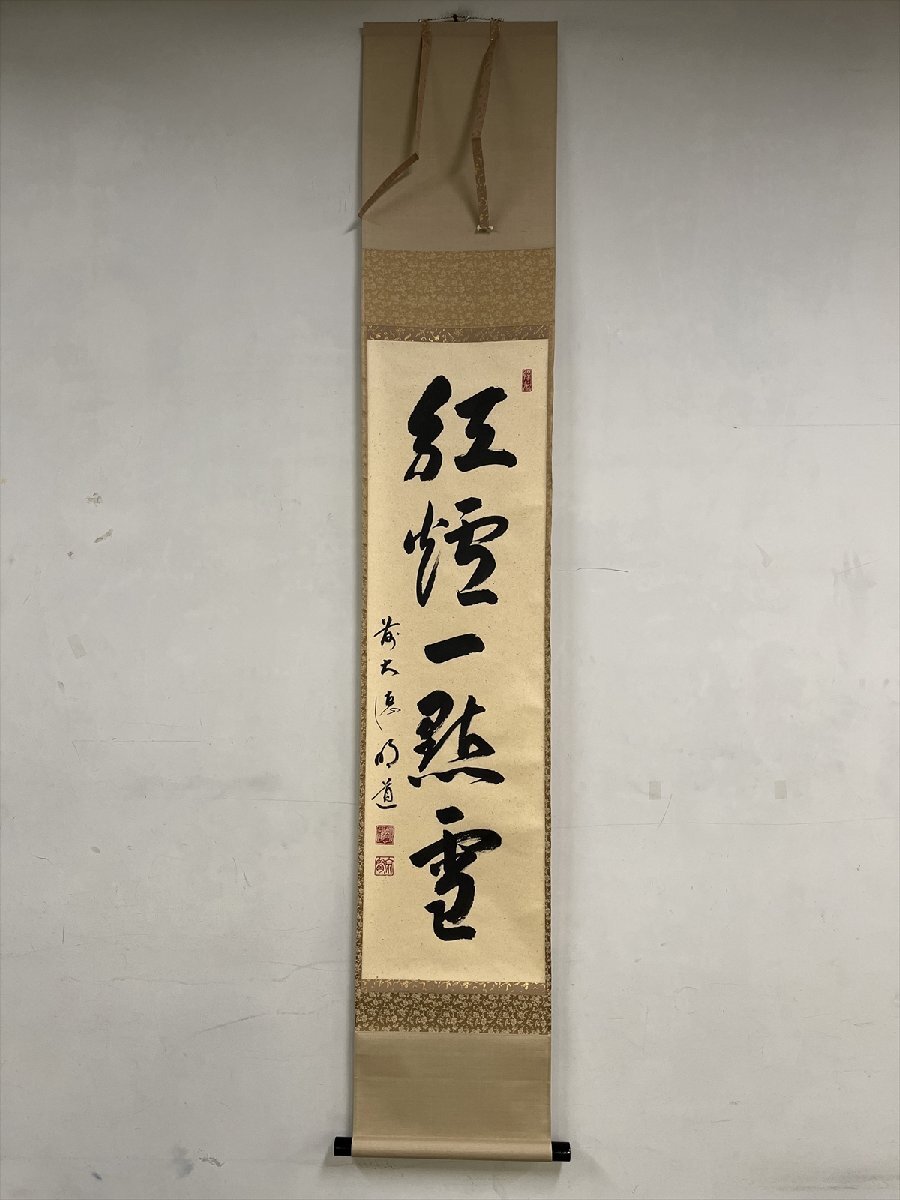 紅爐一點雪
前大德明道